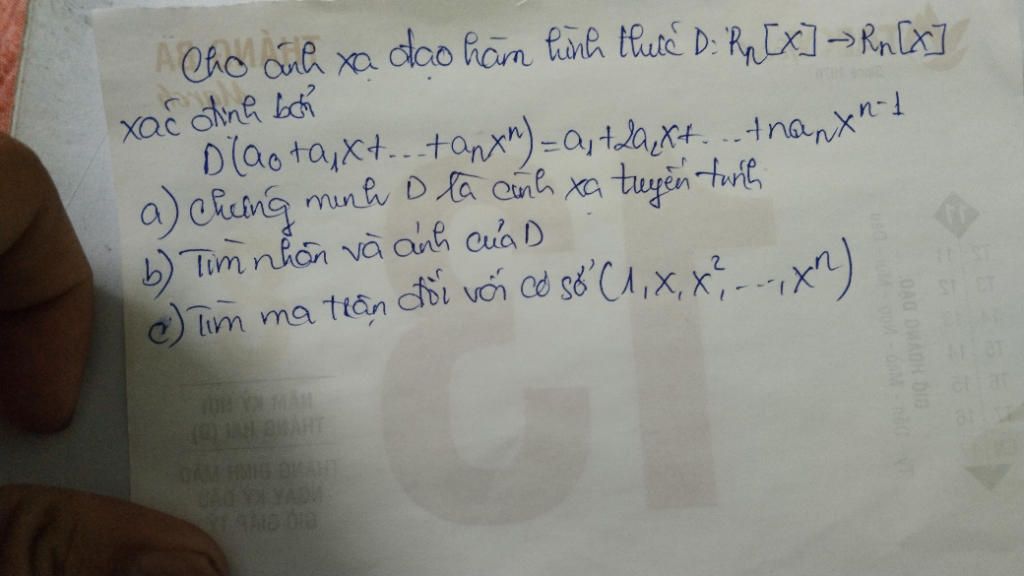 Cho ánh xạ đạo hàm hình thức D: Rn[x] → Rn[x]
xác định bởi
D(a₀ + a₁x + ... + aₙxⁿ) = a₁ + 2a₂x + ... + naₙxⁿ⁻¹
a) Chứng minh D là ánh xạ tuyến tính
b) Tìm nhân và ảnh của D
c) Tìm ma trận đối với cơ sở (1, x, x², ..., xⁿ)